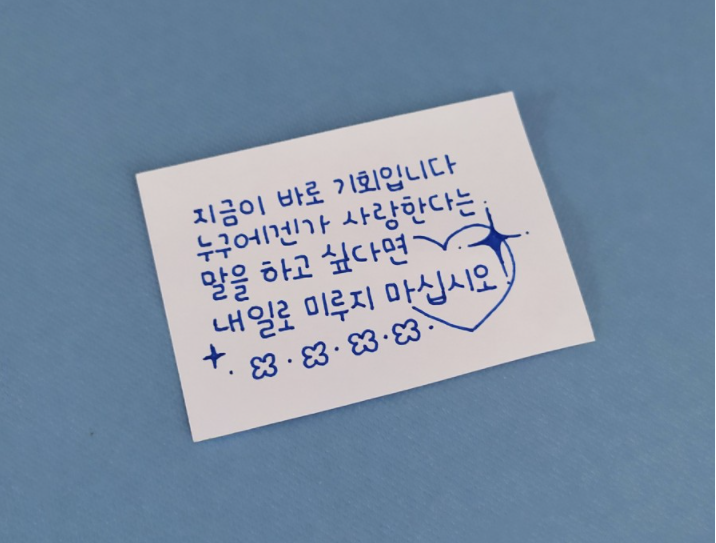 지금이 바로 기회입니다
누구에겐가 사랑한다는
말을 하고 싶다면
내일로 미루지 마십시오